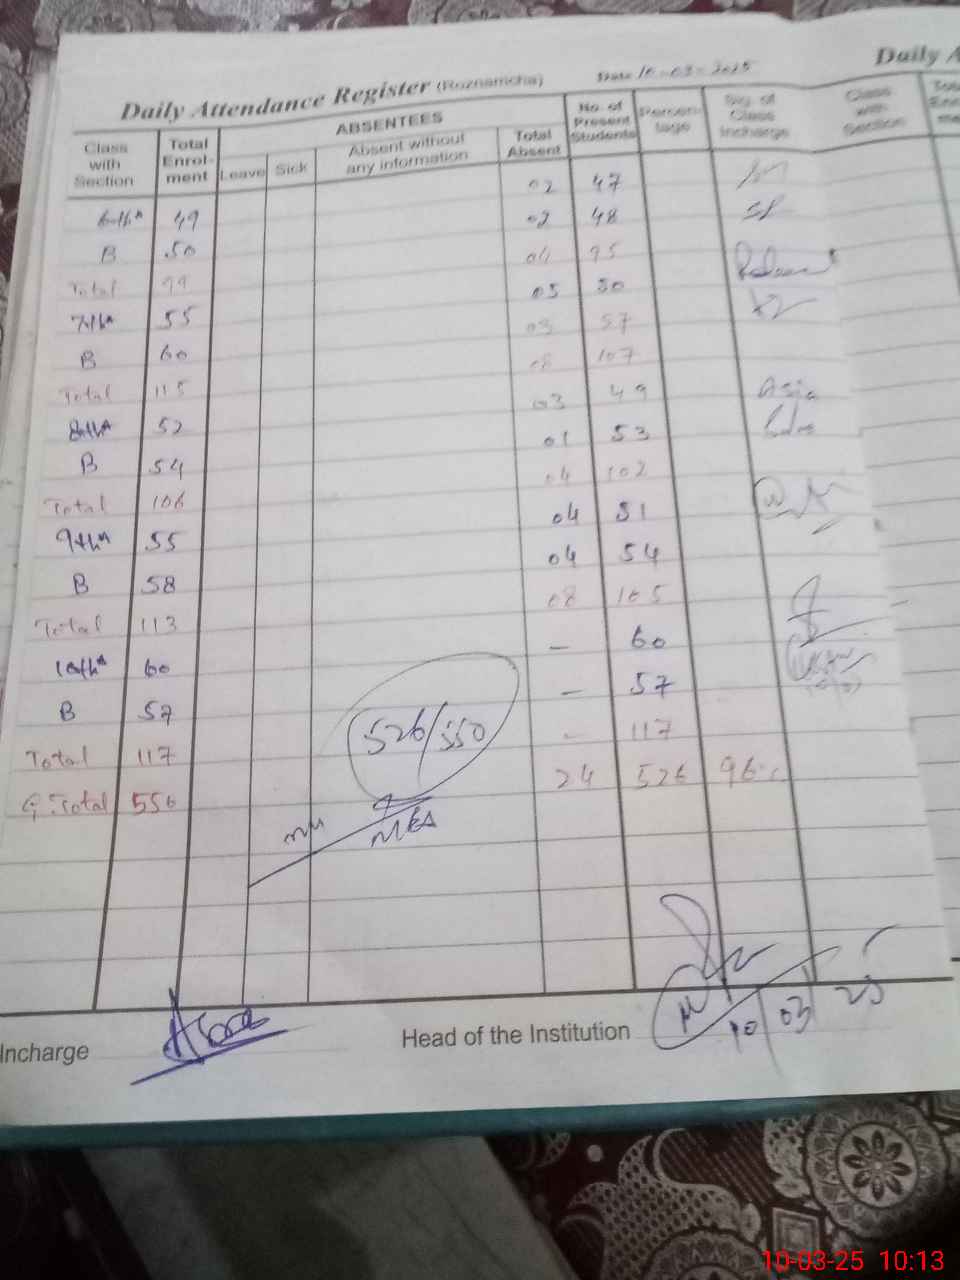 Daily Attendance Register (Roznamcha) Date 10-03-2025
Daily A
Class with Section Total Enrol-ment ABSENTEES Leave Sick Absent without any information Total Absent No. of Present Students Percen-tage Sig. of Class Incharge Class with Section
6th A 49 02 47
B 50 02 48
Total 99 04 95
7th A 55 05 50
B 60 03 57
Total 115 08 107
8th A 52 03 49 Asia
B 54 01 53
Total 106 04 102
9th A 55 04 51
B 58 04 54
Total 113 08 105
10th A 60 — 60
B 57 — 57
Total 117 - 117
G.Total 550 24 526 96%
526/550
MEA
Incharge
Head of the Institution
10/03/25
10-03-25 10:13